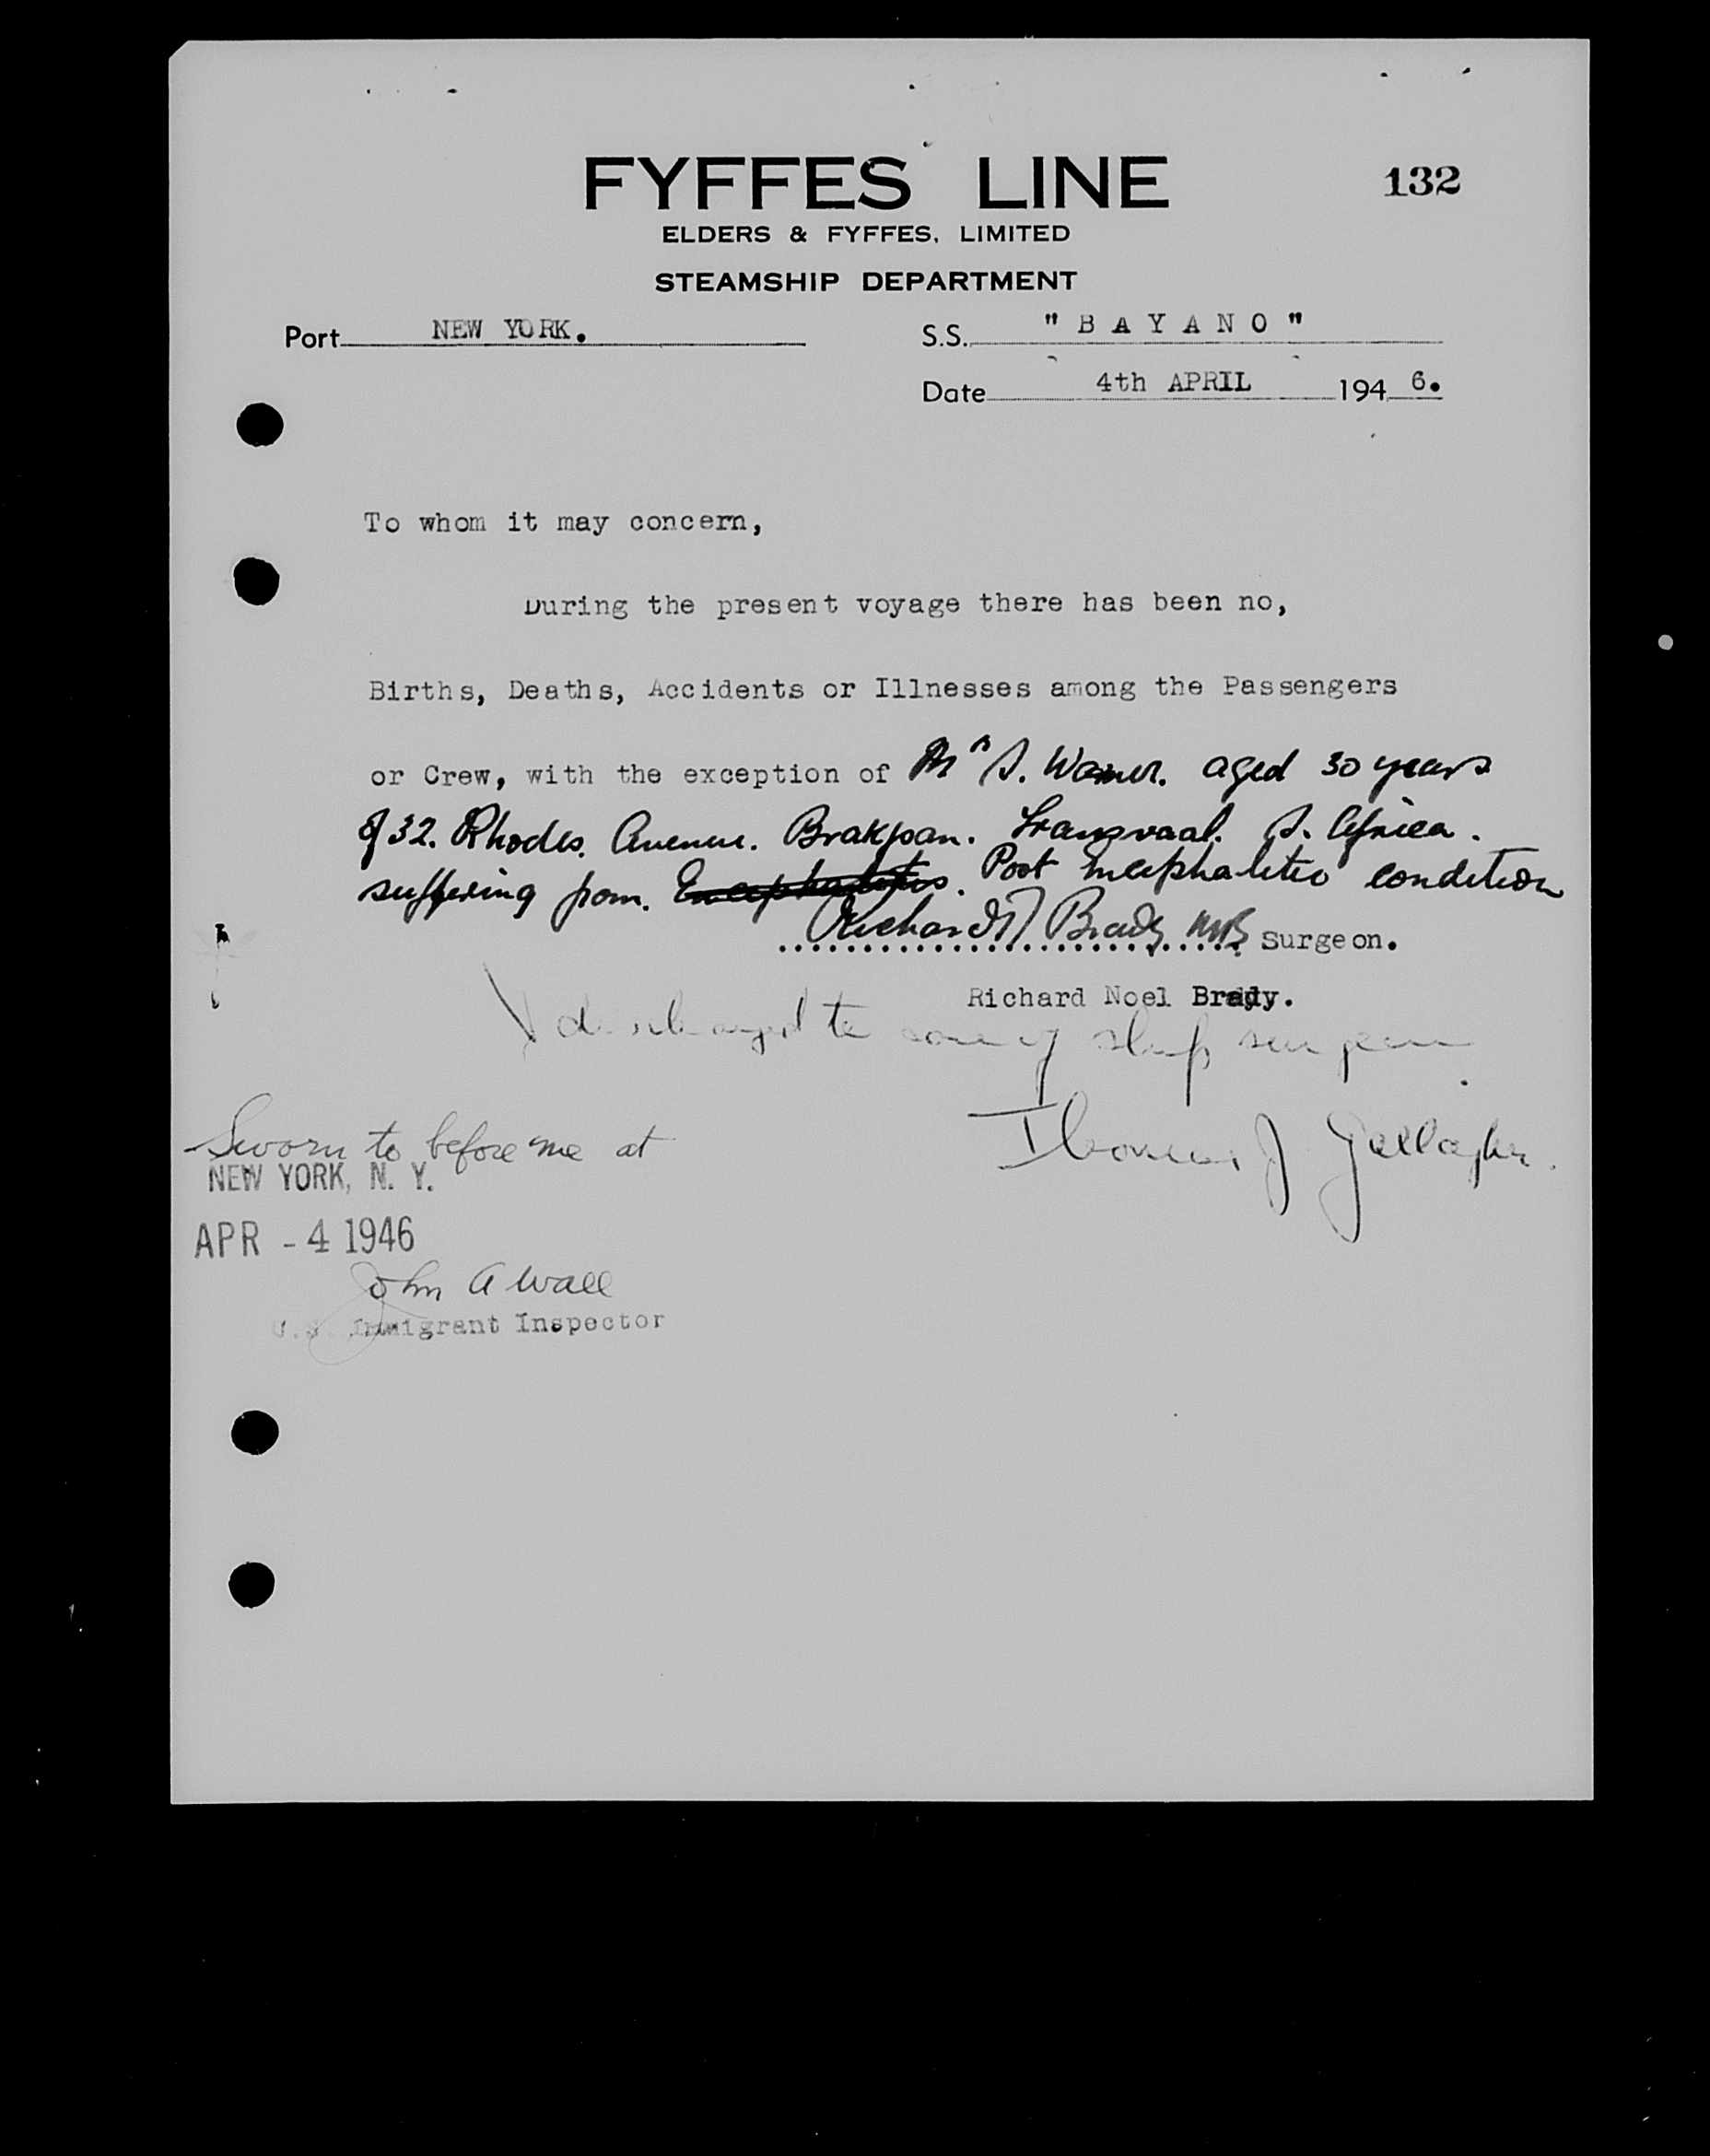 FYFFES LINE
132
ELDERS & FYFFES, LIMITED
STEAMSHIP DEPARTMENT
Port NEW YORK.
S.S. "BAYANO"
Date 4th APRIL 1946.
To whom it may concern,
During the present voyage there has been no,
Births, Deaths, Accidents or Illnesses among the Passengers
or Crew, with the exception of Mr S. aged 30 years
of 32. Rhodes. Avenue. Brakpan. Transvaal. S. Africa.
suffering from. Encephalitis. Post Encephalitic condition
Richard N Brady MB Surgeon.
Richard Noel Brady.
discharged to care of ship surgeon
Thomas J Gallagher.
Sworn to before me at
NEW YORK, N. Y.
APR - 4 1946
John A Wall
U.S. Immigrant Inspector